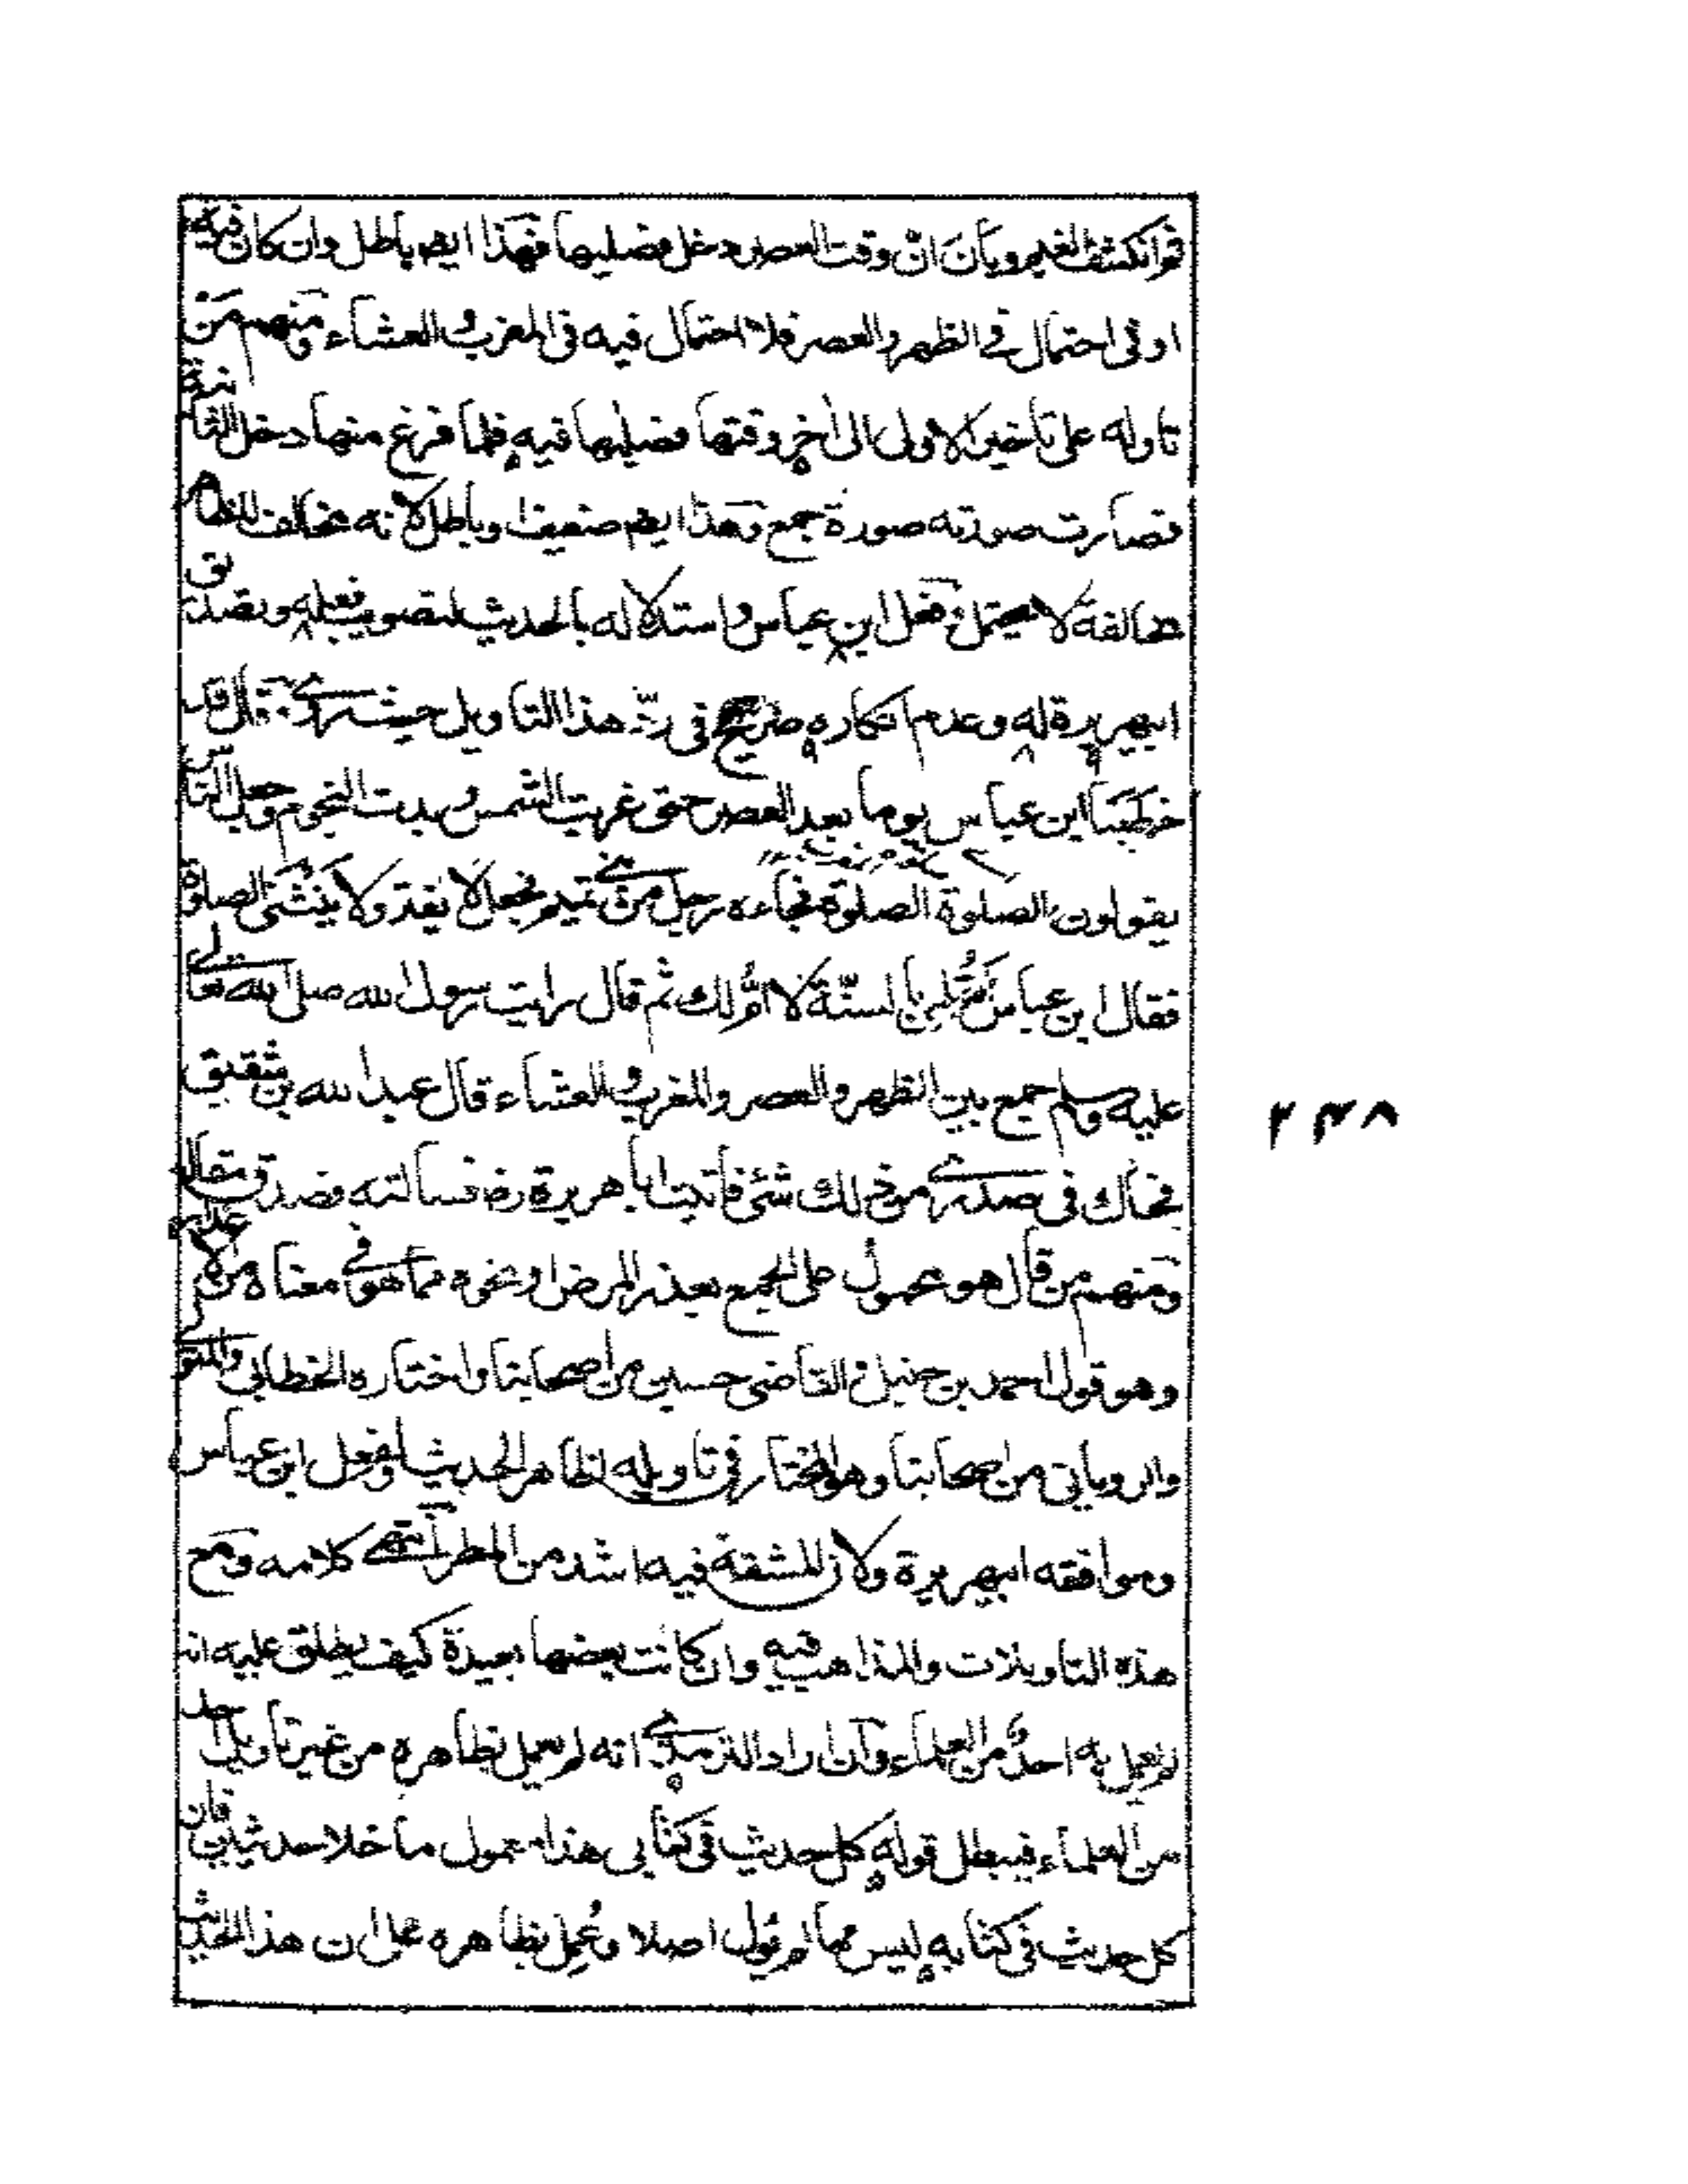 ثم انكشف الغيم وبان ان وقت العصر دخل فصليها فهذا ايضم باطل وان كان فيه
ادنى احتمال في الظهر والعصر فلا احتمال فيه في المغرب والعشاء ومنهم من
تاوله على تاخير الاولى الى اخر وقتها فصليها فيه فلما فرغ منها دخل الثانية
فصارت صورته صورة جمع وهذا ايضم ضعيف او باطل لانه مخالف للظاهر
مخالفة لا تحتمل وفعل ابن عباس واستدلاله بالحديث لتصويب فعله وتصديق
ابيهريرة له وعدم انكاره صريح في رد هذا التاويل حيث روى قال قد
خطبنا ابن عباس يوما بعد العصر حتى غربت الشمس وبدت النجوم وجعل الناس
يقولون الصلوة الصلوة فجاءه رجل من بني تميم فجعل لا يفتر ولا ينثني الصلوة
فقال ابن عباس اتعلمني بالسنة لا ام لك ثم قال رايت رسول الله صلى الله تعالى
عليه وسلم جمع بين الظهر والعصر والمغرب والعشاء قال عبد الله بن شقيق
فحاك في صدري من ذلك شئ فاتيت ابا هريرة رض فسالته فصدق مقالته
ومنهم من قال هو محمول على الجمع بعذر المرض او نحوه مما هو في معناه من الاعذار
وهو قول احمد بن حنبل والقاضى حسين من اصحابنا واختاره الخطابي والمتولي
والروياني من اصحابنا وهو المختار في تاويله لظاهر الحديث ولفعل ابن عباس
وموافقه ابيهريرة ولان المشقة فيه اشد من المطر انتهى كلامه ومع
هذه التاويلات والمذاهب فيه وان كانت بعضها بعيدة كيف يطلق عليه انه
لم يعمل به احد من العلماء وان اراد الترمذي انه لم يعمل بظاهره من غير تاويل احد
من العلماء فيبطل قوله كل حديث في كتابي هذا معمول ما خلا حديثين فان
كل حديث في كتابه ليس مما لم يؤل اصلا وعمل بظاهره على ان هذا الحديث
٢٣٨